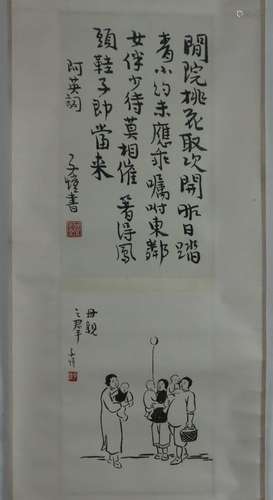 閒院桃花取次開昨日踏
青小約未應乖囑咐東鄰
女伴少待莫相催著得鳳
頭鞋子即當来
阿英詞
子愷書
母親